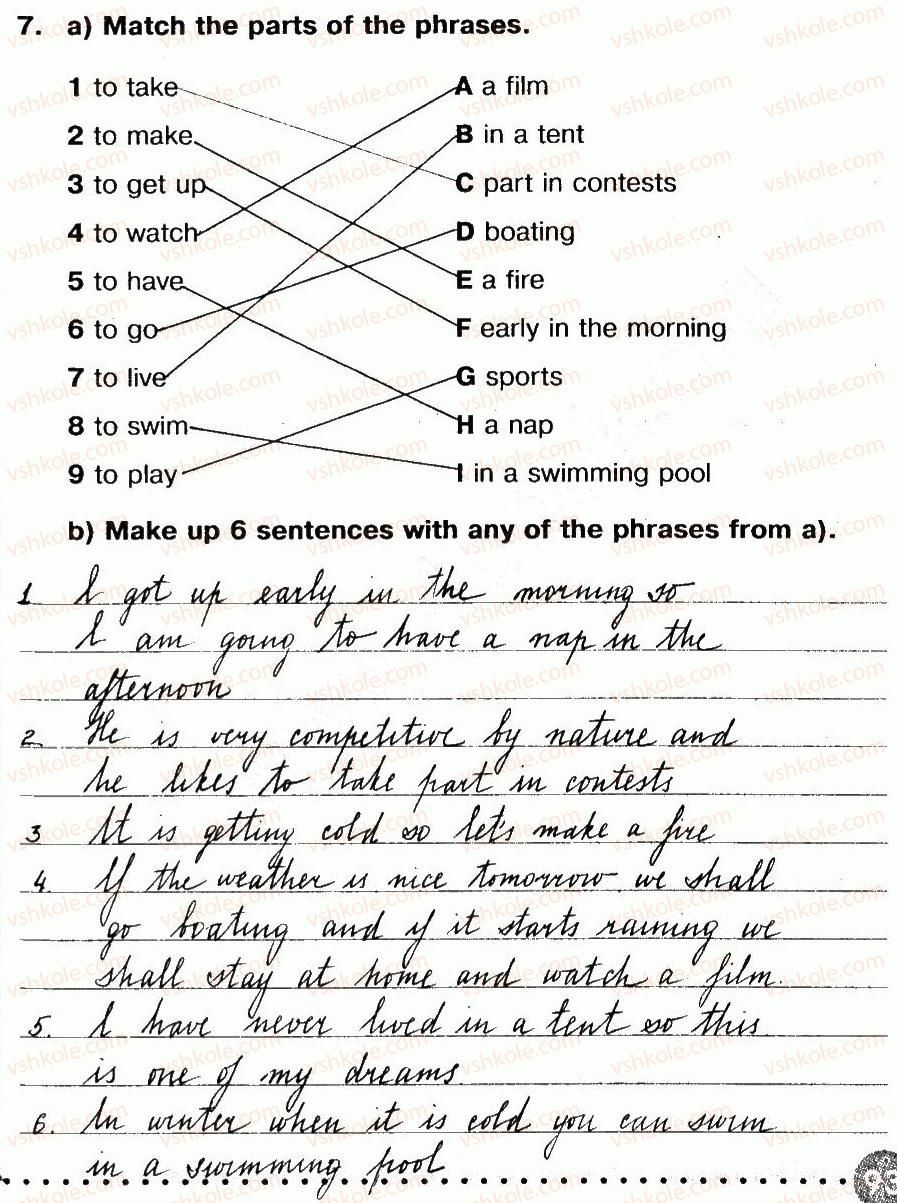 7. a) Match the parts of the phrases.
1 to take A a film
2 to make B in a tent
3 to get up C part in contests
4 to watch D boating
5 to have E a fire
6 to go F early in the morning
7 to live G sports
8 to swim H a nap
9 to play I in a swimming pool
b) Make up 6 sentences with any of the phrases from a).
1 I got up early in the morning so
I am going to have a nap in the
afternoon
2. He is very competitive by nature and
he likes to take part in contests
3 It is getting cold so let's make a fire
4. If the weather is nice tomorrow we shall
go boating and if it starts raining we
shall stay at home and watch a film.
5. I have never lived in a tent so this
is one of my dreams
6. In winter when it is cold you can swim
in a swimming pool